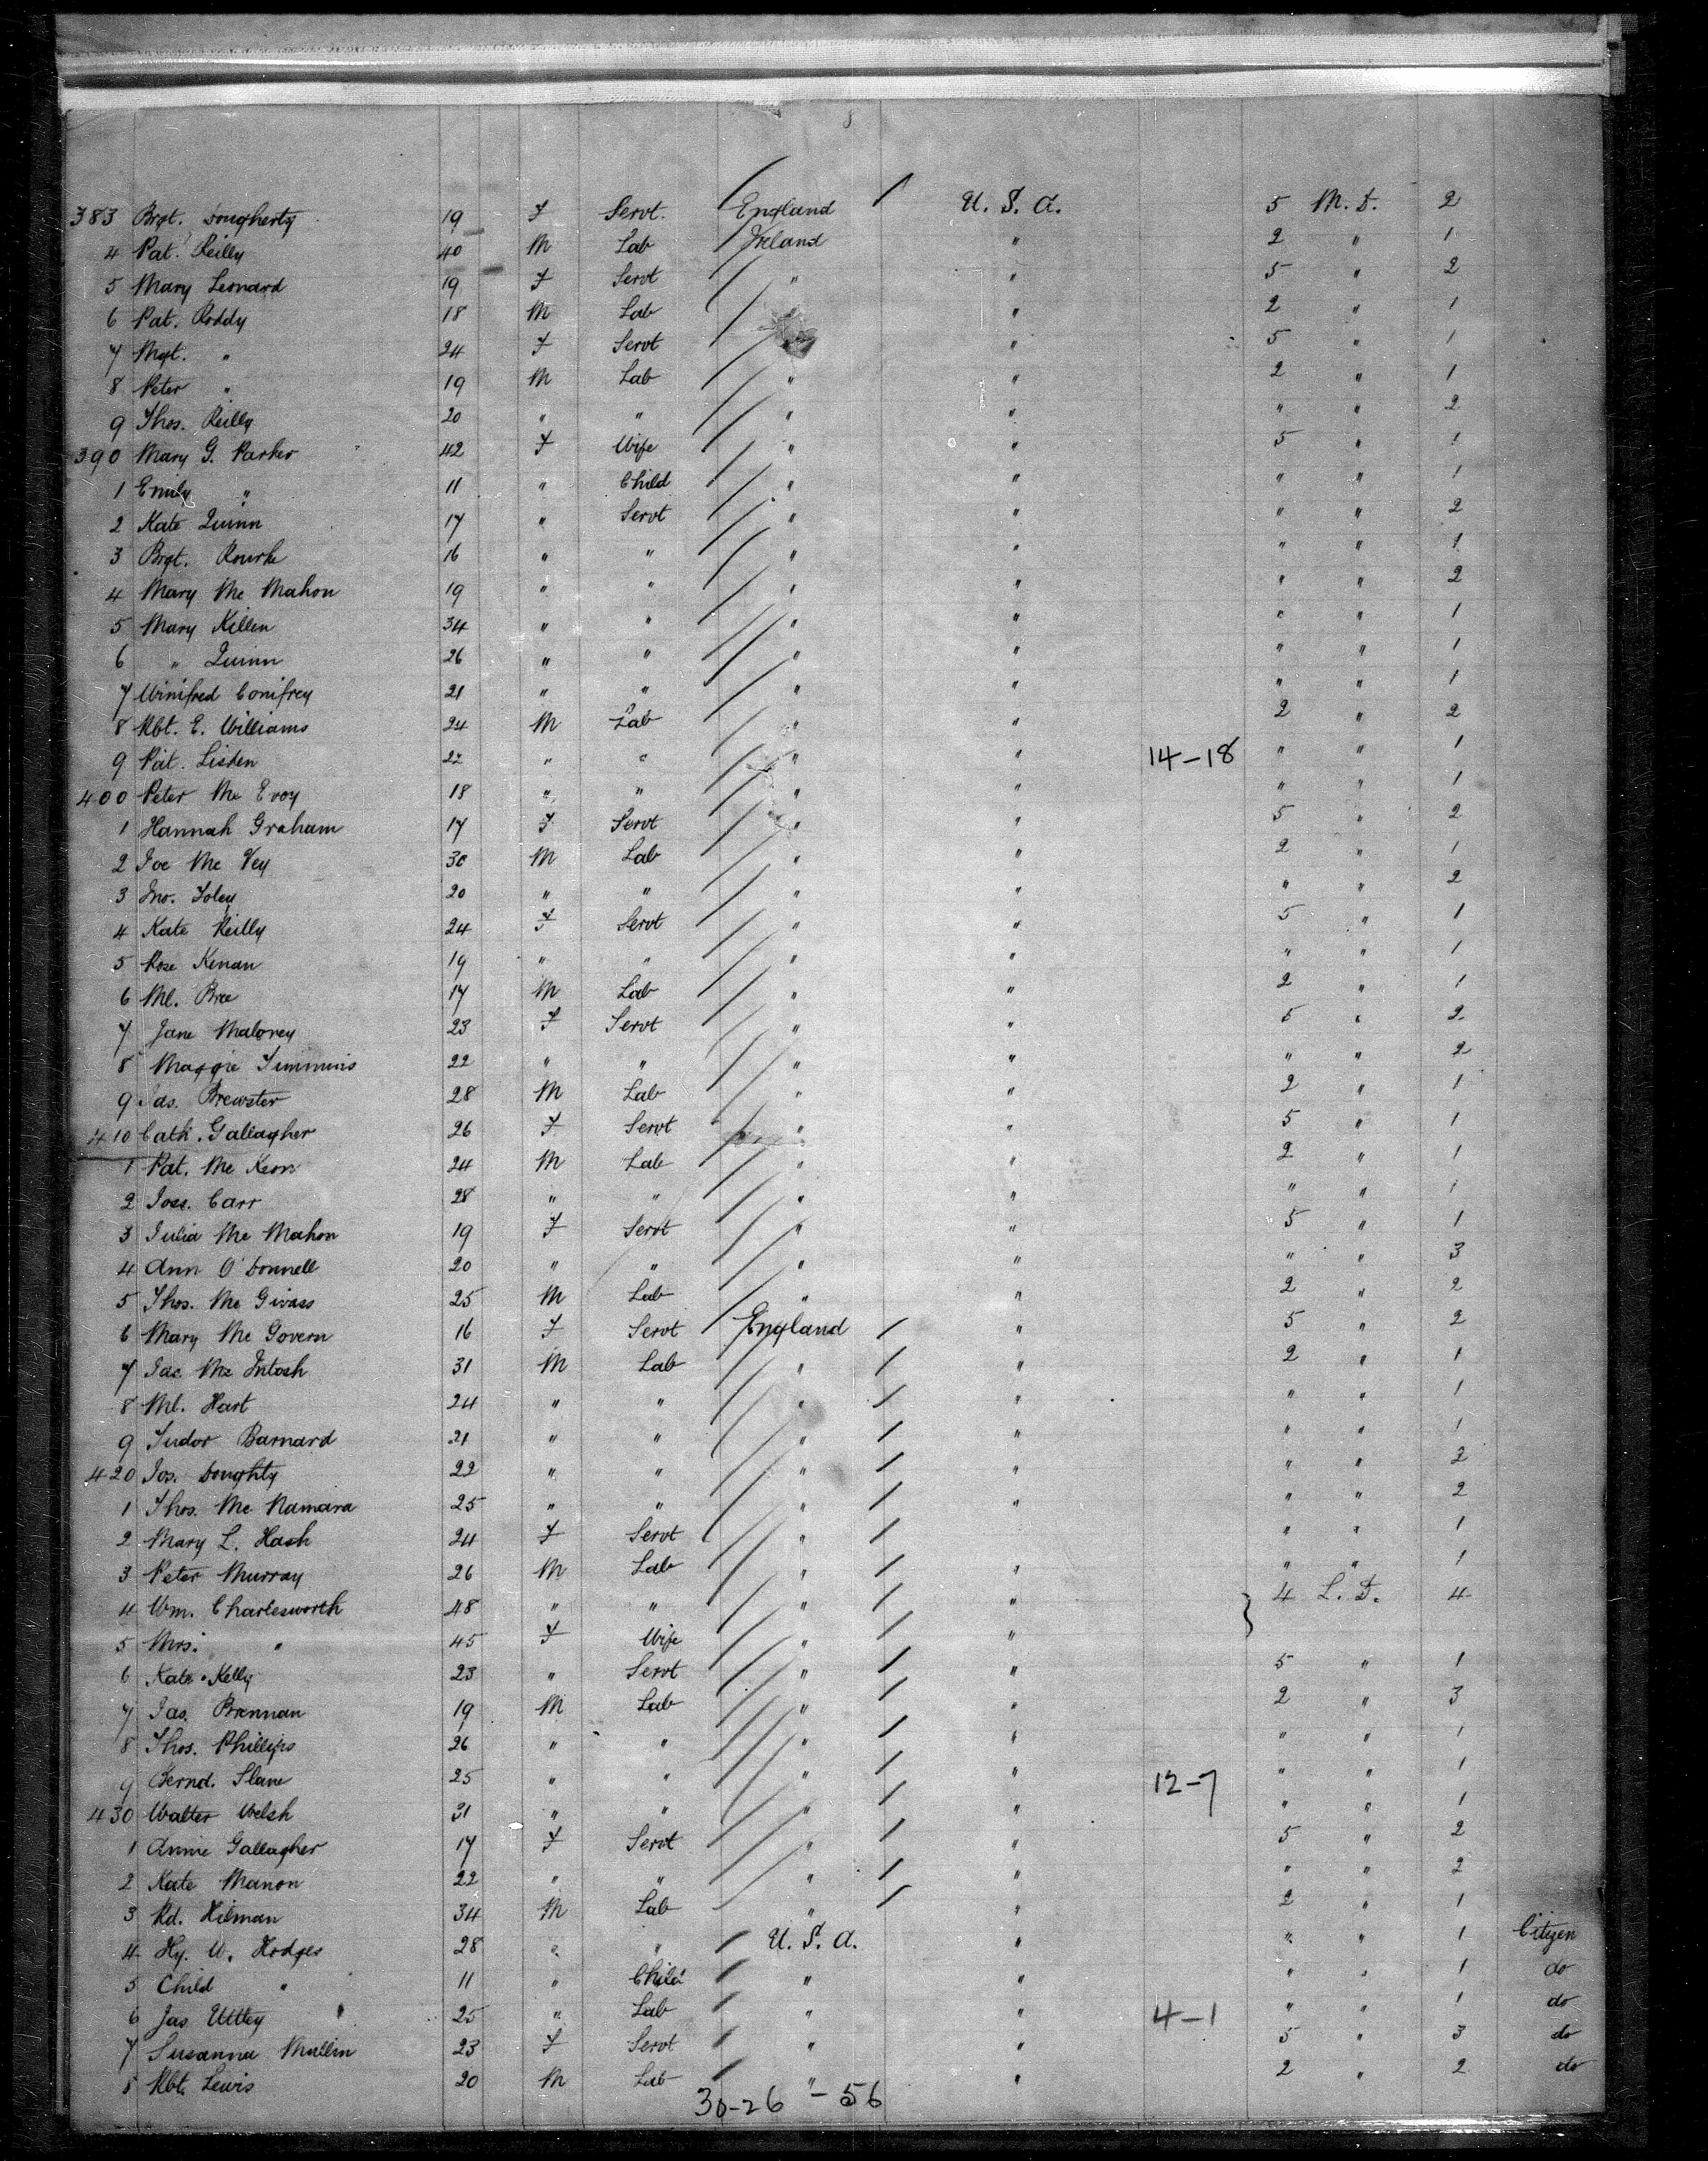 8
383 Brgt. Dougherty 19 F Servt. England U. S. A. 5 M. D. 2
4 Pat. Reilly 40 M Lab Ireland " 2 " 1
5 Mary Leonard 19 F Servt " " 5 " 2
6 Pat. Roddy 18 M Lab " 2 " 1
7 Mgt. " 24 F Servt " 5 " 1
8 Peter " 19 M Lab " " 2 " 1
9 Thos. Reilly 20 " " " " " " 2
390 Mary G. Parker 42 F Wife " " 5 " 1
1 Emily " 11 " Child " " " " 1
2 Kate Quinn 17 " Servt " " " " 2
3 Brgt. Rourke 16 " " " " " " 1
4 Mary Mc Mahon 19 " " " " " " 2
5 Mary Killen 34 " " " " " " 1
6 " Quinn 26 " " " " " " 1
7 Winifred Comifrey 21 " " " " " " 1
8 Rbt. E. Williams 24 M Lab " " 2 " 2
9 Pat. Lisden 22 " " " " 14-18 " " 1
400 Peter Mc Evoy 18 " " " " " " 1
1 Hannah Graham 17 F Servt " " 5 " 2
2 Joe Mc Vey 30 M Lab " " 2 " 1
3 Jno. Foley 20 " " " " " " 2
4 Kate Reilly 24 F Servt " " 5 " 1
5 Rose Kenan 19 " " " " " " 1
6 Ml. Bree 17 M Lab " " 2 " 1
7 Jane Maloney 23 F Servt " " 5 " 2
8 Maggie Timmins 22 " " " " " " 2
9 Jas. Brewster 28 M Lab " " 2 " 1
410 Cath. Gallagher 26 F Servt " " 5 " 1
1 Pat. Mc Keon 24 M Lab " " 2 " 1
2 Jos. Carr 28 " " " " " " 1
3 Julia Mc Mahon 19 F Servt " " 5 " 1
4 Ann O'Donnell 20 " " " " " " 3
5 Thos. Mc Givass 25 M Lab " " 2 " 2
6 Mary Mc Govern 16 F Servt England " 5 " 2
7 Jas. Mc Intosh 31 M Lab " " 2 " 1
8 Ml. Hart 24 " " " " " " 1
9 Tudor Barnard 21 " " " " " " 1
420 Jos. Doughty 22 " " " " " " 2
1 Thos. Mc Namara 25 " " " " " " 2
2 Mary L. Hash 24 F Servt " " " 1
3 Peter Murray 26 M Lab " " " " 1
4 Wm. Charlesworth 48 " " " " 4 L. D. 4
5 Mrs. " 45 F Wife " "
6 Kate Kelly 23 " Servt " " 5 " 1
7 Jas. Brennan 19 M Lab " " 2 " 3
8 Thos. Phillips 26 " " " " " " 1
9 Bernd. Slane 25 " " " " 12-7 " " 1
430 Walter Welsh 31 " " " " " " 1
1 Annie Gallagher 17 F Servt " " 5 " 2
2 Kate Manon 22 " " " " " " 2
3 Rd. Hilman 34 M Lab " " 2 " 1
4 Hy. W. Hodges 28 " " U. S. A. " " " 1 Citizen
5 Child " 11 " Child " " " " 1 do
6 Jas Uttley 25 " Lab " " 4-1 " " 1 do
7 Susanna Mullin 23 F Servt " " 5 " 3 do
8 Rbt. Lewis 20 M Lab " " 2 " 2 do
30-26-56